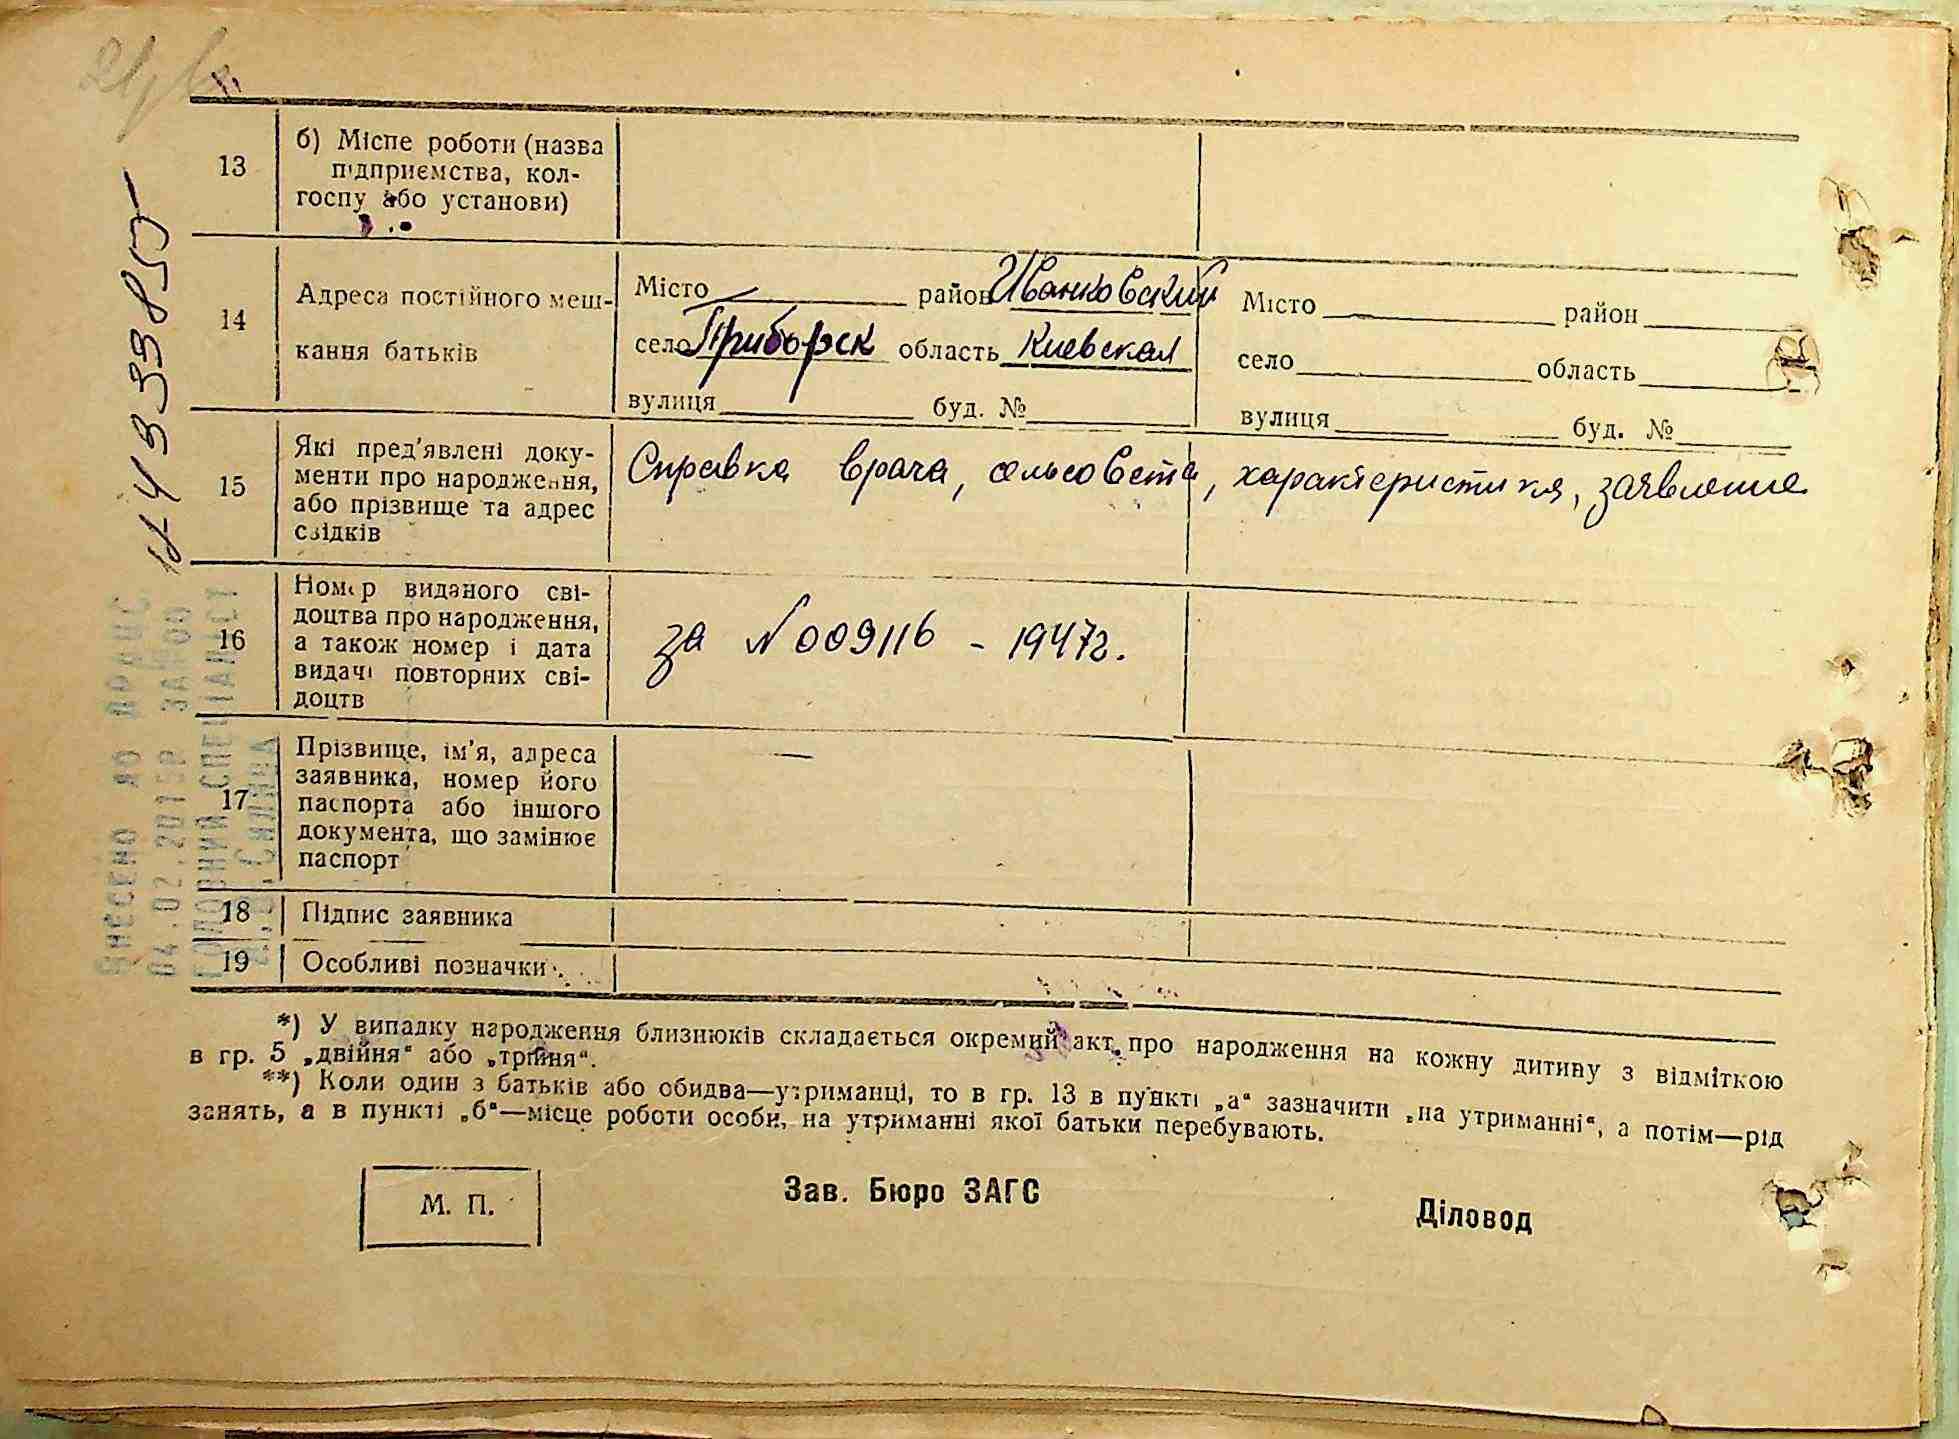 13
б) Місце роботи (назва
підприємства, кол-
госпу або установи)
14
Адреса постійного меш-
кання батьків
Місто район Иванковский
село Приборск область Киевская
вулиця буд. №
Місто район
село область
вулиця буд. №
15
Які пред'явлені доку-
менти про народження,
або прізвище та адрес
свідків
Справка врача, сельсовета, характеристика, заявление
16
Номер виданого сві-
доцтва про народження,
а також номер і дата
видачі повторних сві-
доцтв
за N 009116 - 1947г.
17
Прізвище, ім'я, адреса
заявника, номер його
паспорта або іншого
документа, що замінює
паспорт
—
18 Підпис заявника
19 Особливі позначки
*) У випадку народження близнюків складається окремий акт про народження на кожну дитину з відміткою
в гр. 5 „двійня" або „трійня".
**) Коли один з батьків або обидва—утриманці, то в гр. 13 в пункті „а" зазначити „на утриманні", а потім—рід
занять, а в пункті „б"—місце роботи особи, на утриманні якої батьки перебувають.
М. П.
Зав. Бюро ЗАГС
Діловод
Внесено до ДРАЦС
04.02.201 ЗА №00
ГОЛОВНИЙ СПЕЦІАЛІСТ